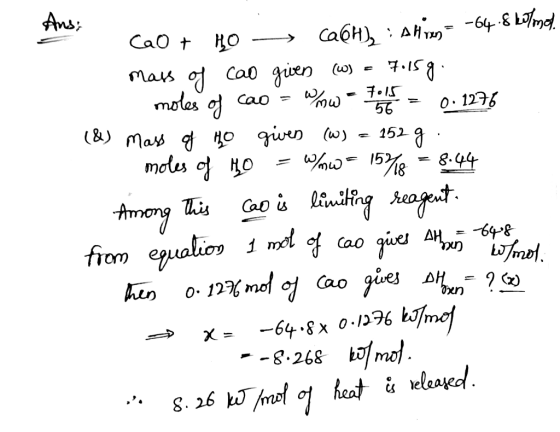 Ans:
CaO + H₂O ⟶ Ca(OH)₂ : ΔH°rxn = -64.8 kJ/mol.
mass of CaO given (w) = 7.15 g.
moles of CaO = w/mw = 7.15/56 = 0.1276
(&) Mass of H₂O given (w) = 152 g.
moles of H₂O = w/mw = 152/18 = 8.44
Among this CaO is limiting reagent.
from equation 1 mol of CaO gives ΔH°rxn = -64.8 kJ/mol.
then 0.1276 mol of CaO gives ΔH°rxn = ? (x)
⇒ x = -64.8 x 0.1276 kJ/mol
= -8.268 kJ/mol.
∴ 8.26 kJ/mol of heat is released.